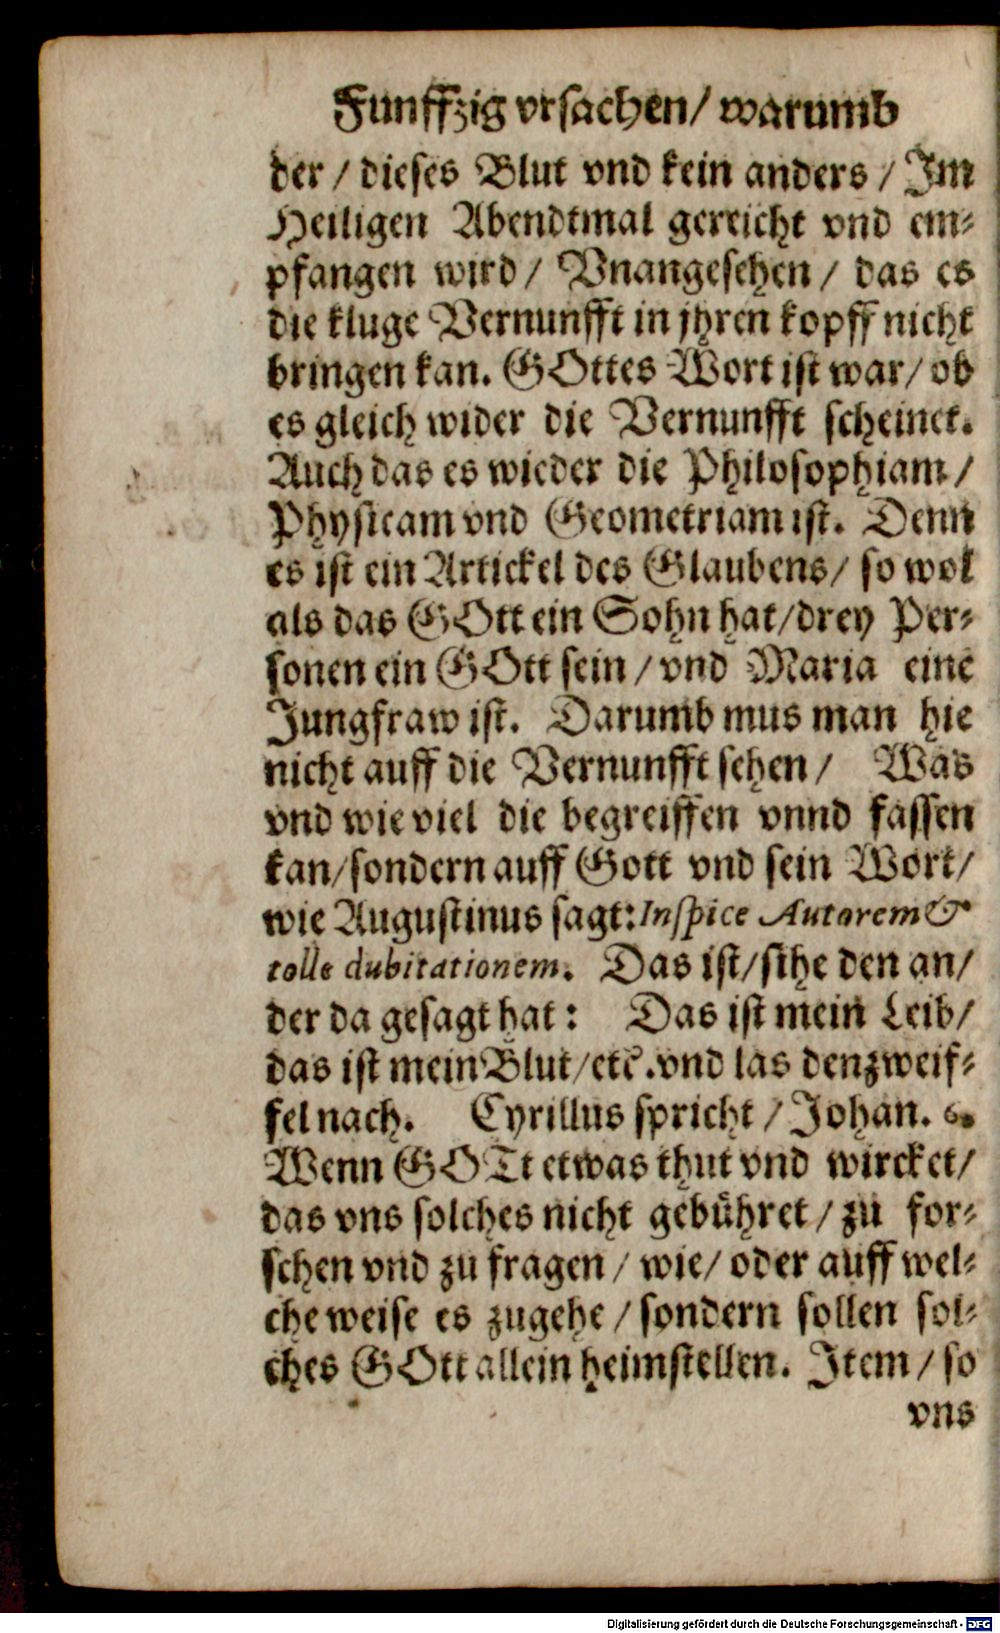 Funffzig vrsachen/ warumb
der / dieses Blut vnd kein anders / Im
Heiligen Abendtmal gereicht vnd em-
pfangen wird / Vnangesehen / das es
die kluge Vernunfft in jhren kopff nicht
bringen kan. GOttes Wort ist war / ob
es gleich wider die Vernunfft scheinet.
Auch das es wieder die Philosophiam /
Physicam vnd Geometriam ist. Denn
es ist ein Artickel des Glaubens / so wol
als das GOtt ein Sohn hat / drey Per-
sonen ein GOtt sein / vnd Maria eine
Jungfraw ist. Darumb mus man hie
nicht auff die Vernunfft sehen / Was
vnd wie viel die begreiffen vnnd fassen
kan / sondern auff Gott vnd sein Wort /
wie Augustinus sagt: Inspice Autorem &
tolle dubitationem. Das ist / sihe den an /
der da gesagt hat: Das ist mein Leib /
das ist mein Blut / etc. vnd las den zweif-
fel nach. Cyrillus spricht / Johan. 6.
Wenn GOTt etwas thut vnd wircket /
das vns solches nicht gebühret / zu for-
schen vnd zu fragen / wie / oder auff wel-
che weise es zugehe / sondern sollen sol-
ches GOtt allein heimstellen. Item / so
vns
Digitalisierung gefördert durch die Deutsche Forschungsgemeinschaft - DFG